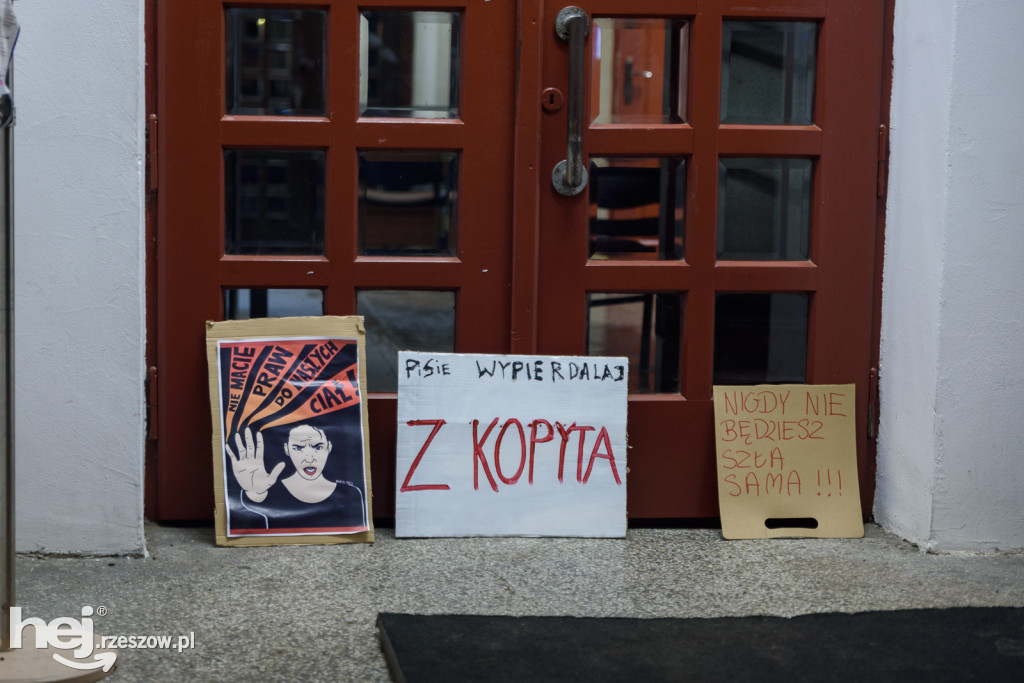 NIE MACIE
PRAW
DO NASZYCH
CIAŁ!
PiSiE WYPIERDALAJ
Z KOPYTA
NIGDY NIE
BĘDZIESZ
SZŁA
SAMA !!!
hej.rzeszow.pl